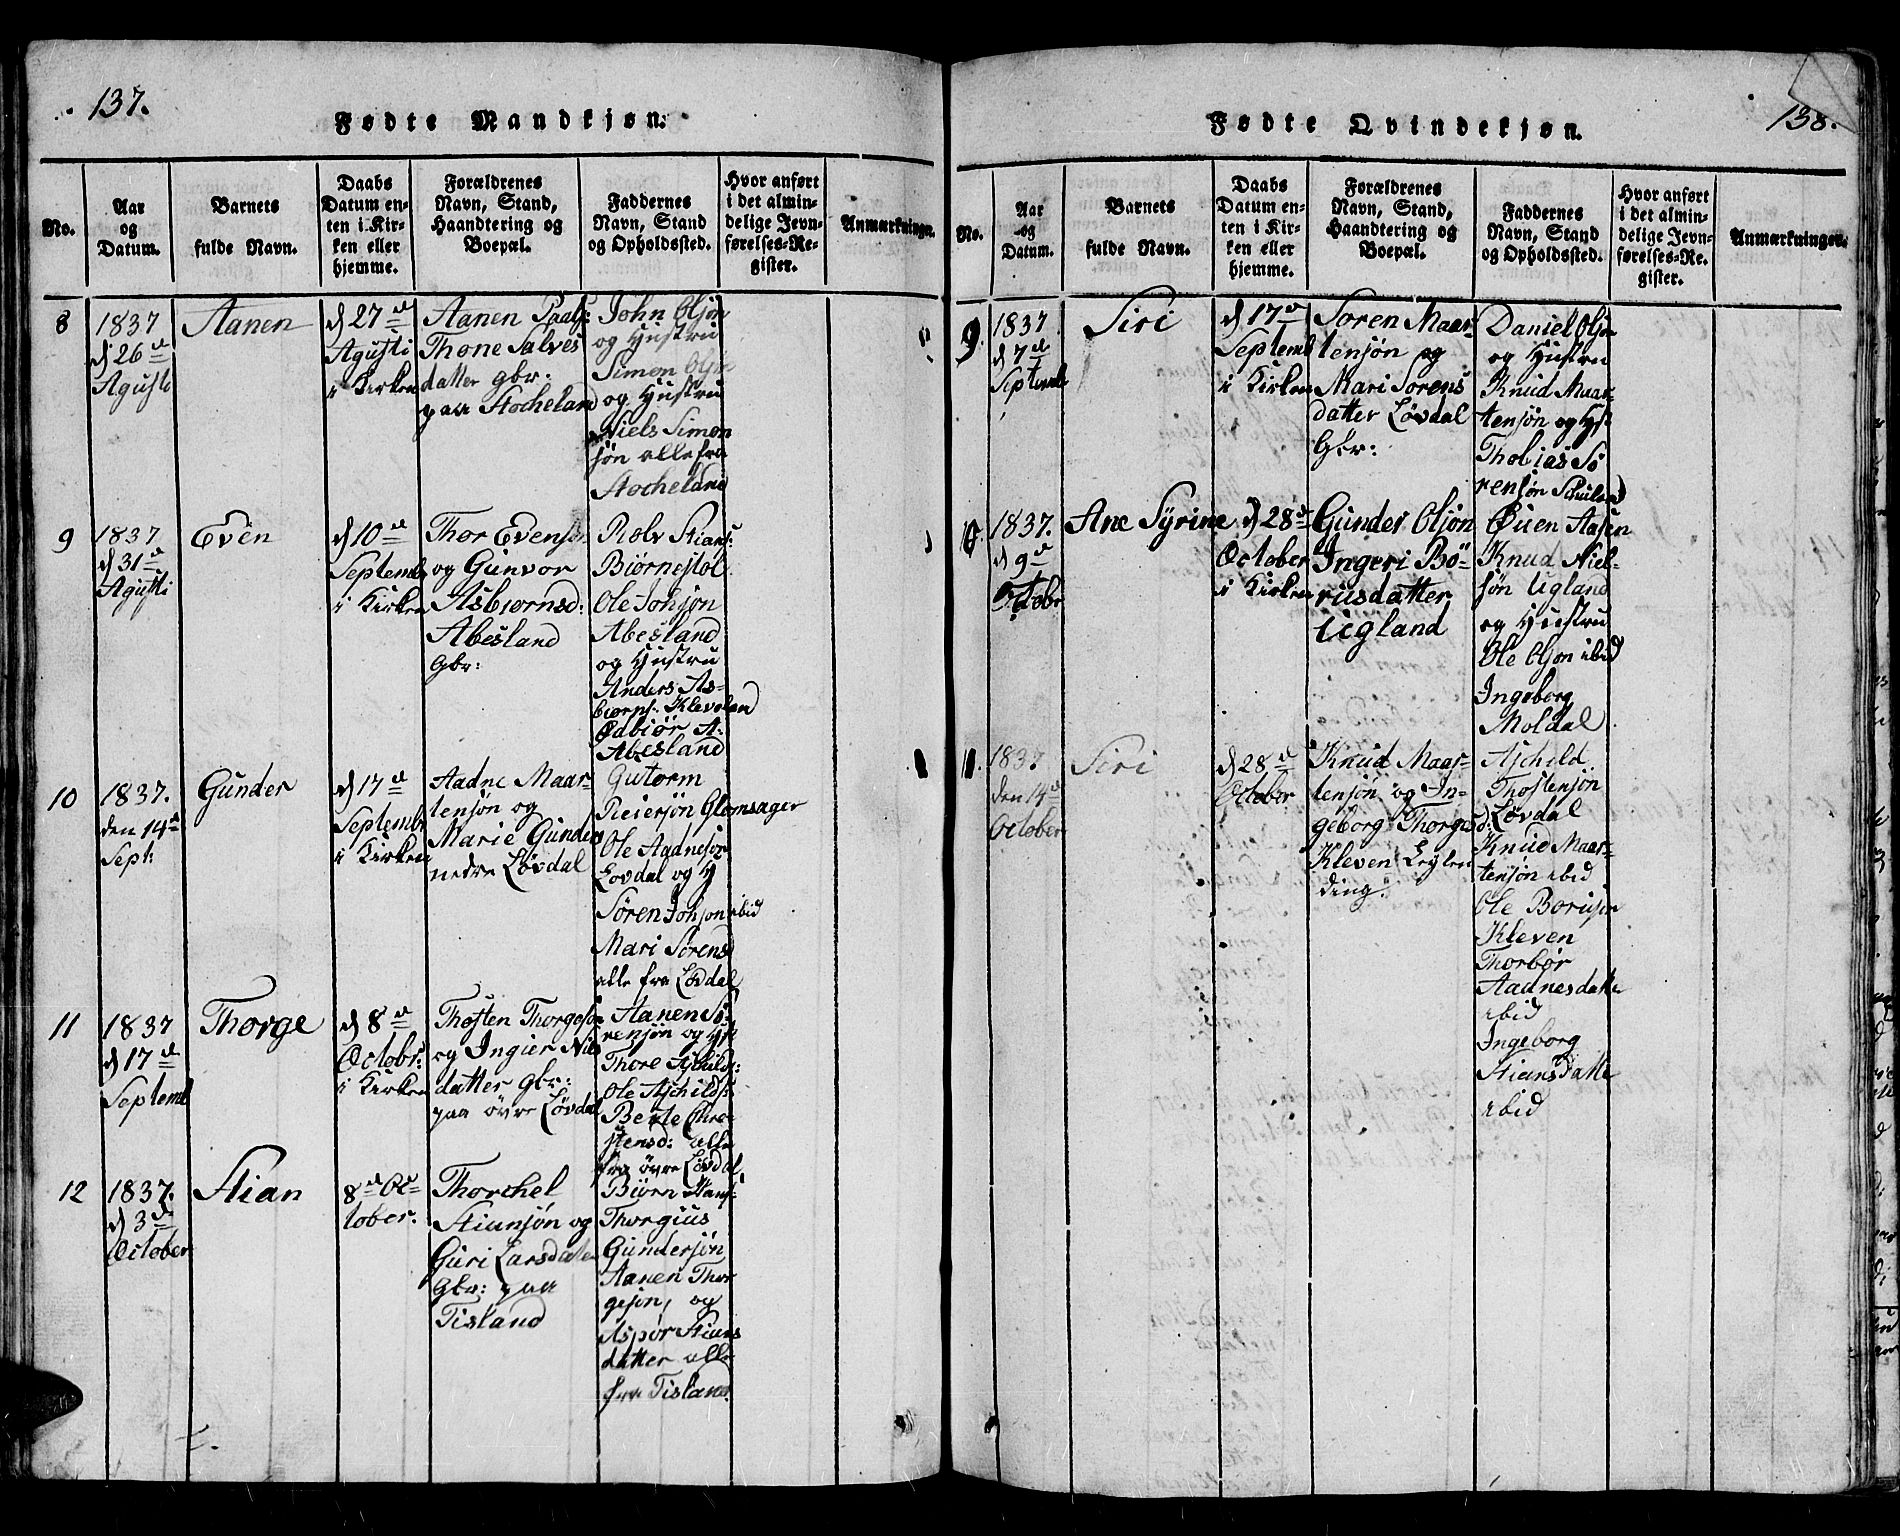 137.
Fødte Mandkjøn.
No.
Aar
og
Datum.
Barnets
fulde Navn.
Daabs
Datum en-
ten i Kir-
ken eller
hjemme.
Forældrenes
Navn, Stand,
Haandtering og
Boepæl.
Faddernes
Navn, Stand
og Opholdssted.
Hvor anført
i det almin-
delige Jevn-
førelses-Re-
gister.
Anmærkninger.
8
1837
d 26de
Agusti
Aanen
d 27de
Agusti
i Kirken
Aanen Paals:
Thone Salves
datter gbr:
paa Stocheland
John Olsøn
og Hustru
Simon Olsøn
og Hustru
Niels Simon
søn alle fra
Stocheland
9
1837
d 31de
Agusti
Even
d 10de
Septemb
i Kirken
Thor Evens
og Gunvor
Asbiørnsd:
Abesland
Gbr:
Rolv Stians:
Biørnestøl
Ole Johsøn
Abesland
og Hustru
Anders As-
biørns: Kleveland
Ødbiør A:
Abesland
10
1837.
den 14de
Sept:
Gunder
d 17de
Septembr
i Kirken
Aadne Maar
tensøn og
Marie Gunders
nedre Løvdal
Gutorm
Reiersøn Glomsager
Ole Aadnesøn
Lovdal og H
Søren Johson ibid
Mari Sørensd
alle fra Løvdal
11
1837
d 17de
Septemb
Thorge
d 8de
Octobr:
i Kirken
Thosten Thorgesøn
og Ingier Niels
datter gbr:
paa øvre Løvdal
Aanen Sø
rensøn og Hst
Thore Aschilds:
Ole Aschilds:
Berte Thro
stensd: alle
fra øvre Løvdal
12
1837.
d 3de
October
Stian
8de Oc
tober.
Thorchel
Stiansøn og
Guri Larsdatter
Gbr: paa
Tisland
Biørn Hans:
Thorgius
Gundersøn
Aanen Thor
gesøn, og
Aspør Stians
datter alle
fra Tisland.
138.
Fødte Qvindekjøn.
No.
Aar
og
Datum.
Barnets
fulde Navn.
Daabs
Datum en-
ten i Kir-
ken eller
hjemme.
Forældrenes
Navn, Stand,
Haandtering og
Boepæl.
Faddernes
Navn, Stand
og Opholdssted.
Hvor anført
i det almin-
delige Jevn-
førelses-Re-
gister.
Anmærkninger.
9.
1837
d 7de
Septemb
Siri
d 17de
Septemb
i Kirken
Soren Maar
tensøn og
Mari Sorens
datter Løvdal
Gbr:
Daniel Olsøn
og Hustru
Knud Maar
tensøn og Hst
Thobias Sø
rensøn
10.
1837.
d 9de
Octobr
Ane Syrine
d 28de
October
i Kirken
Gunder Olsøn
Ingeri Bö-
rusdatter
Ugland
Øuen Aasen
Knud Niel-
søn Ugland
og Hustru
Ole Olson ibid
Ingeborg
Moldal
11.
1837
den 14de
October
Siri
d 28de
October
Knud Maar-
tensøn og In-
geborg Thorgesd:
Kleven Leylen
ding.
Aschild
Thostensøn
Løvdal
Knud Maar-
tensøn ibid
Ole Borusøn
Kleven
Thorbør
Aadnesdatte
ibid
Ingeborg
Stiansdatte
ibid